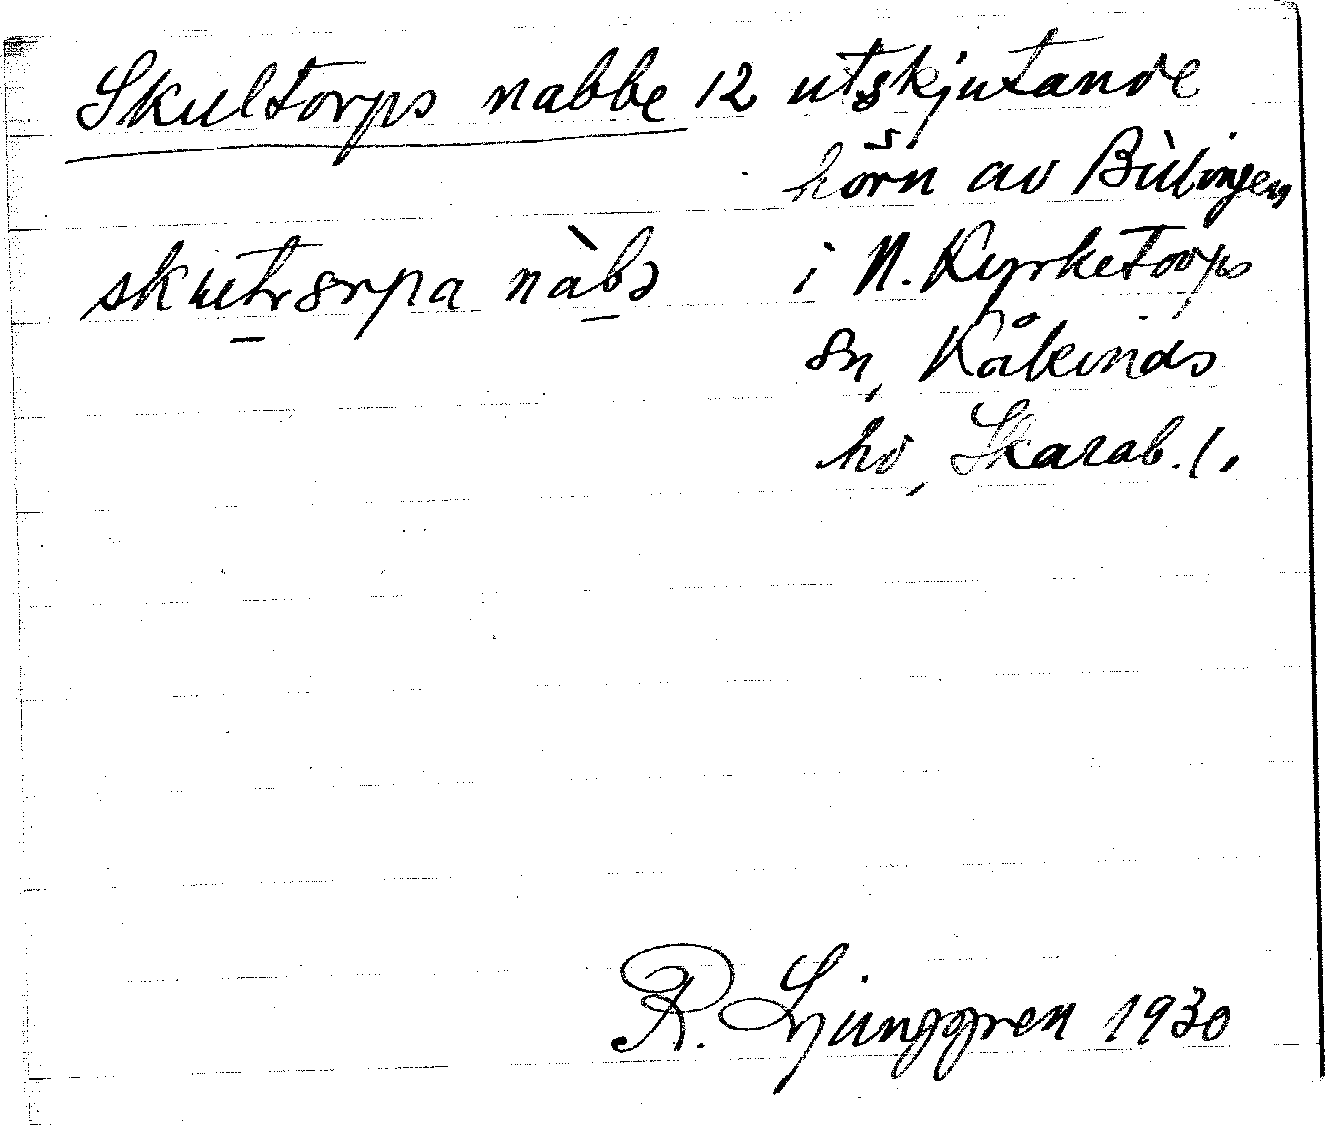 Skultorps nabbe 12 utskjutande
hörn av Billingen
i N. Kyrketorps
sn, Kåkinds
hd, Skarab. l.
R. Ljunggren 1930